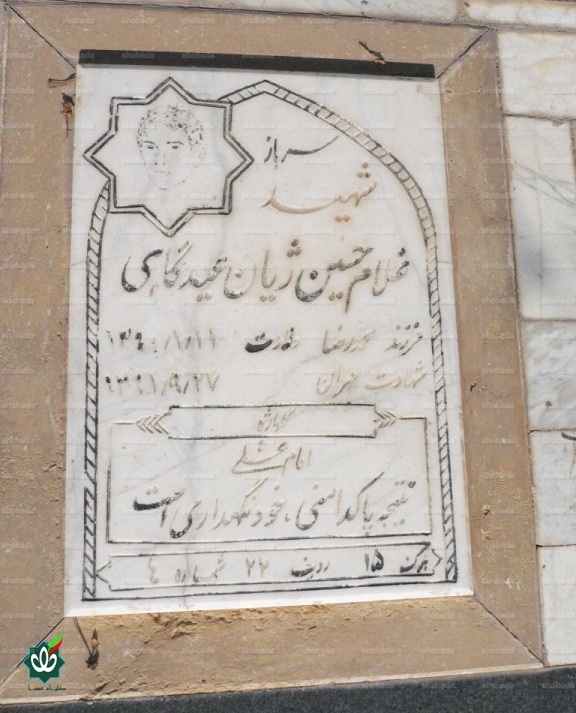 سرباز
شهید
غلام حسین ژیان عیدگاهی
فرزند محمدرضا ولادت ۱۳۴۰/۱/۱۱
شهادت مهران ۱۳۶۱/۹/۲۷
گلواژه
امام علی ع
نتیجه پاکدامنی، خودنگهداری است
بلوک ۱۵ ردیف ۲۲ شماره ۴